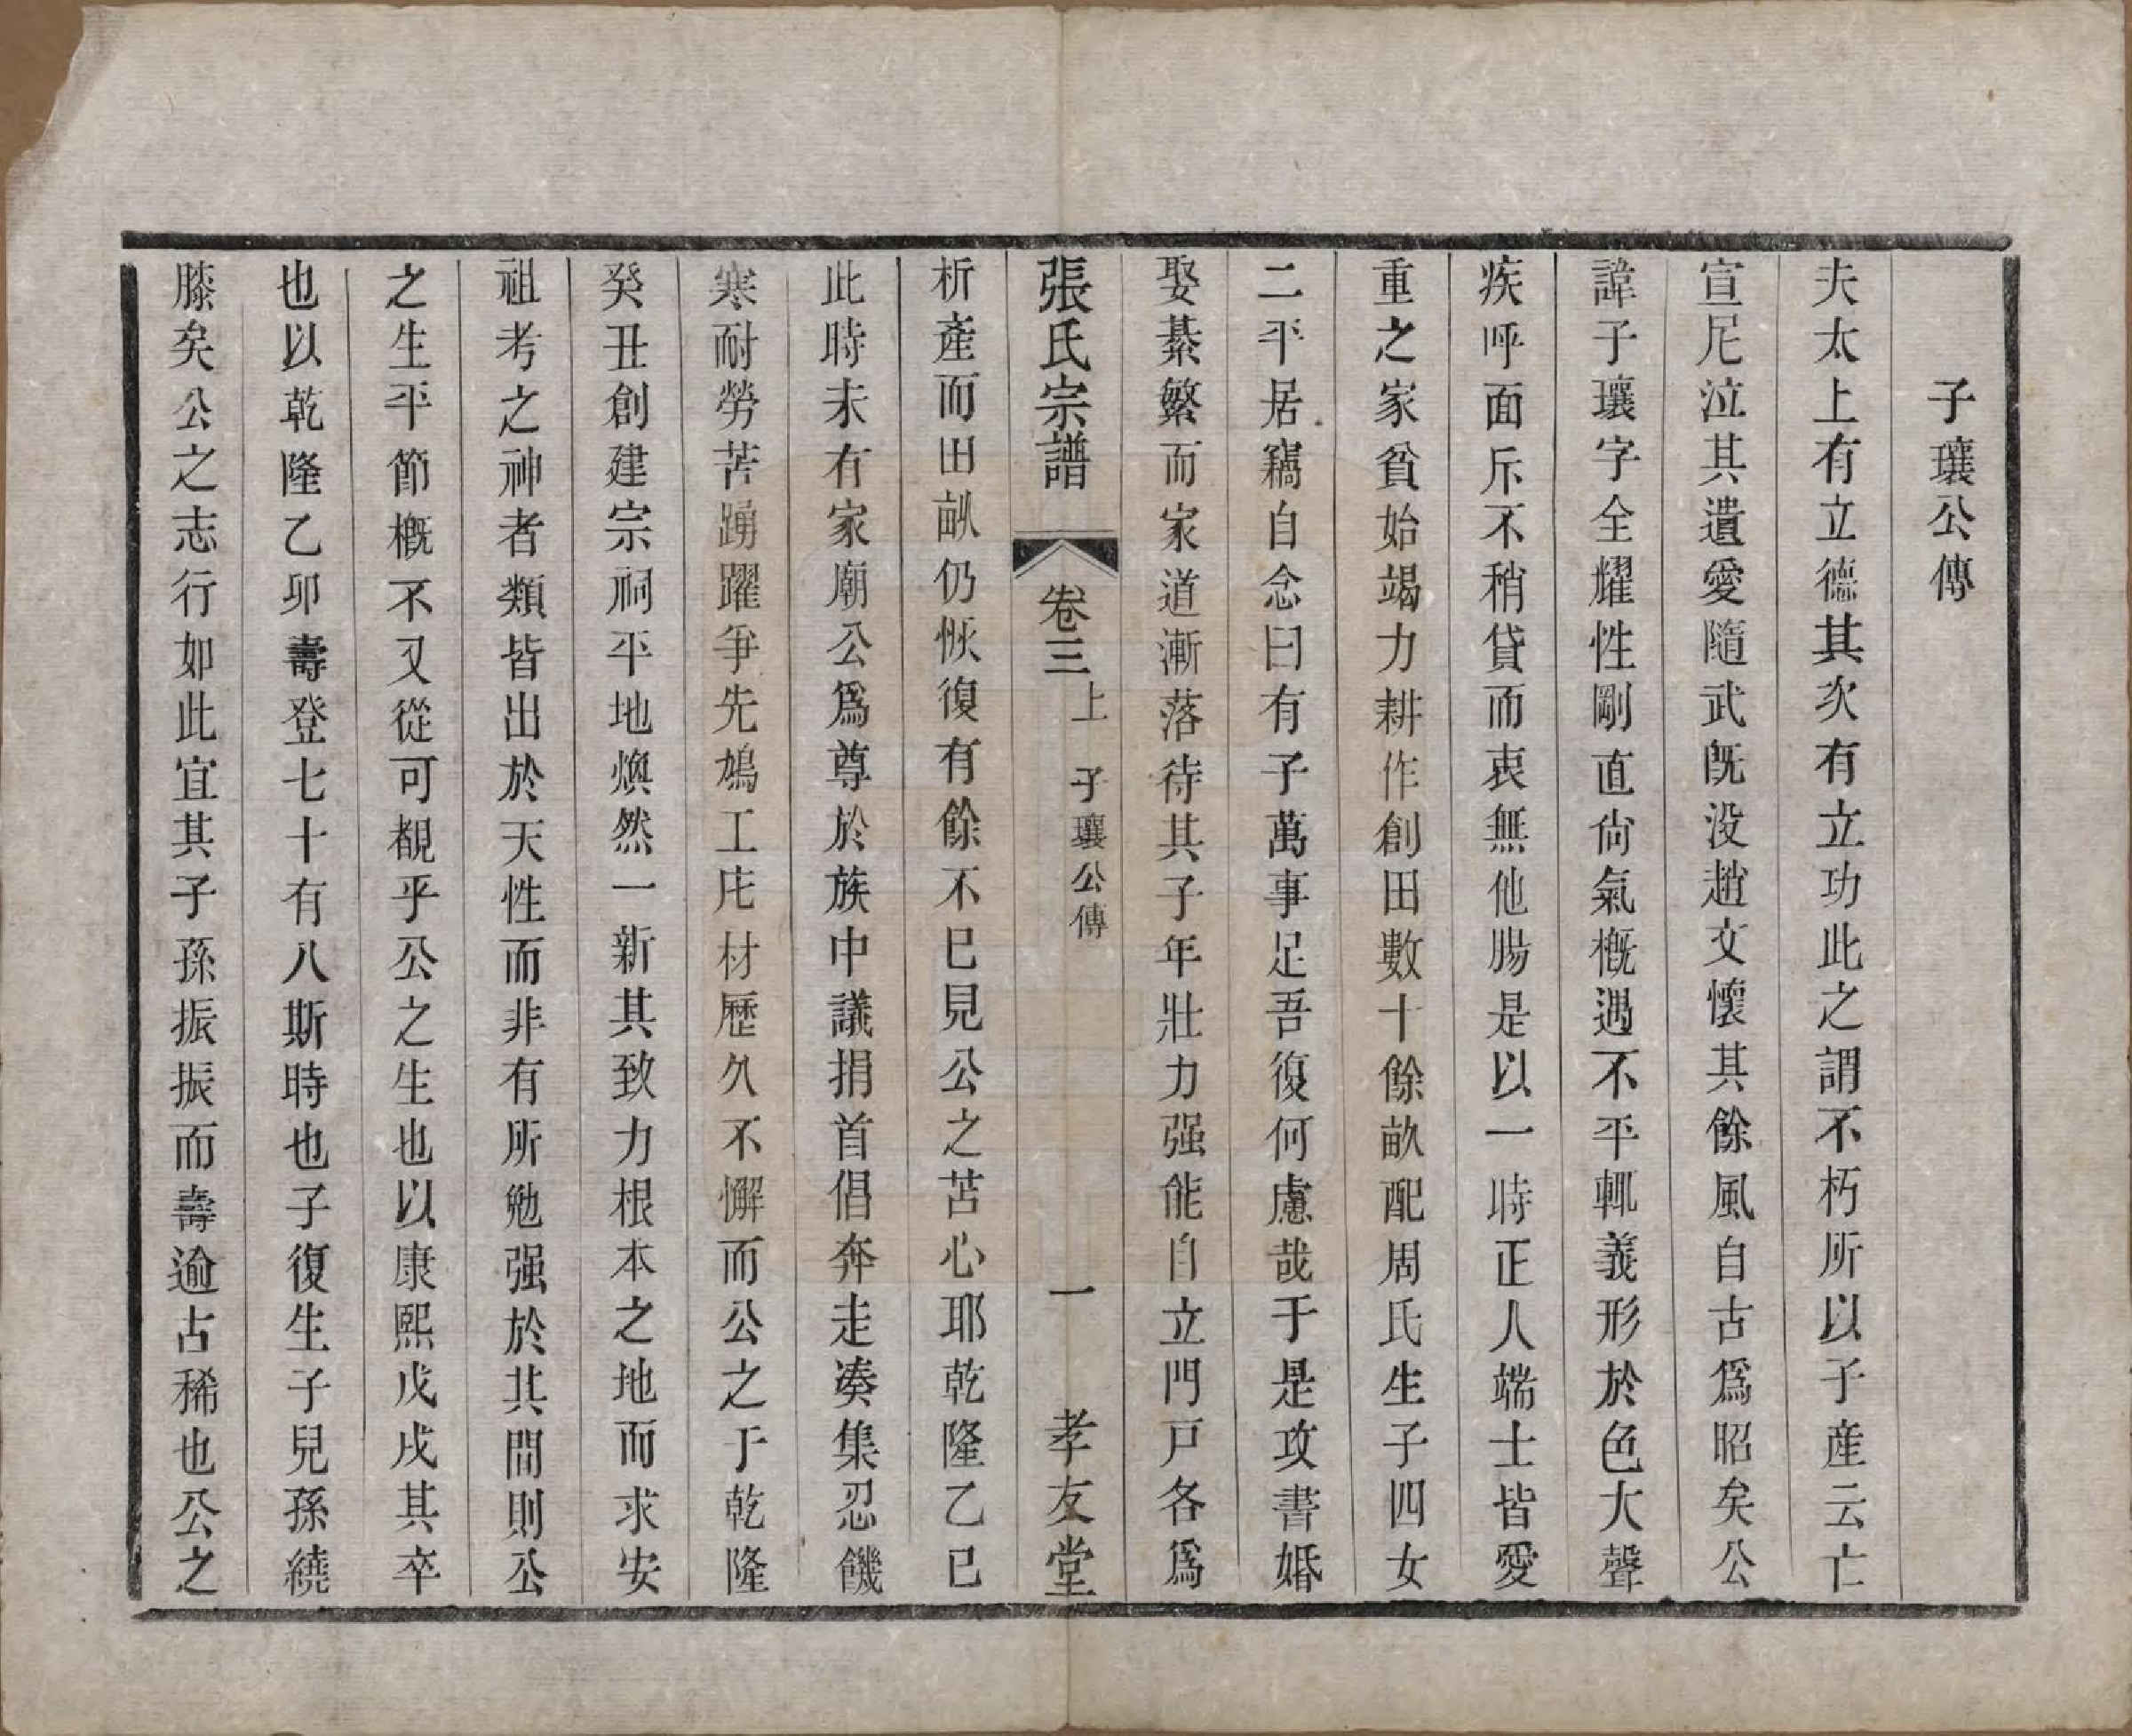 子瓖公傳
夫太上有立德其次有立功此之謂不朽所以子産云亡
宣尼泣其遺愛隨武旣没趙文懷其餘風自古爲昭矣公
諱子瓖字全耀性剛直尙氣槪遇不平輒義形於色大聲
疾呼面斥不稍貸而衷無他腸是以一時正人端士皆愛
重之家貧始竭力耕作創田數十餘畝配周氏生子四女
二平居竊自念曰有子萬事足吾復何慮哉于是攻書婚
娶綦繁而家道漸落待其子年壯力强能自立門戸各爲
張氏宗譜 卷三上 子瓖公傳 一 孝友堂
析產而田畝仍恢復有餘不已見公之苦心耶乾隆乙已
此時未有家廟公爲尊於族中議捐首倡奔走湊集忍饑
寒耐勞苦踴躍爭先鳩工庀材歷久不懈而公之于乾隆
癸丑創建宗祠平地煥然一新其致力根本之地而求安
祖考之神者類皆出於天性而非有所勉强於其間則公
之生平節槪不又從可覩乎公之生也以康熙戊戌其卒
也以乾隆乙卯壽登七十有八斯時也子復生子兒孫繞
膝矣公之志行如此宜其子孫振振而壽逾古稀也公之